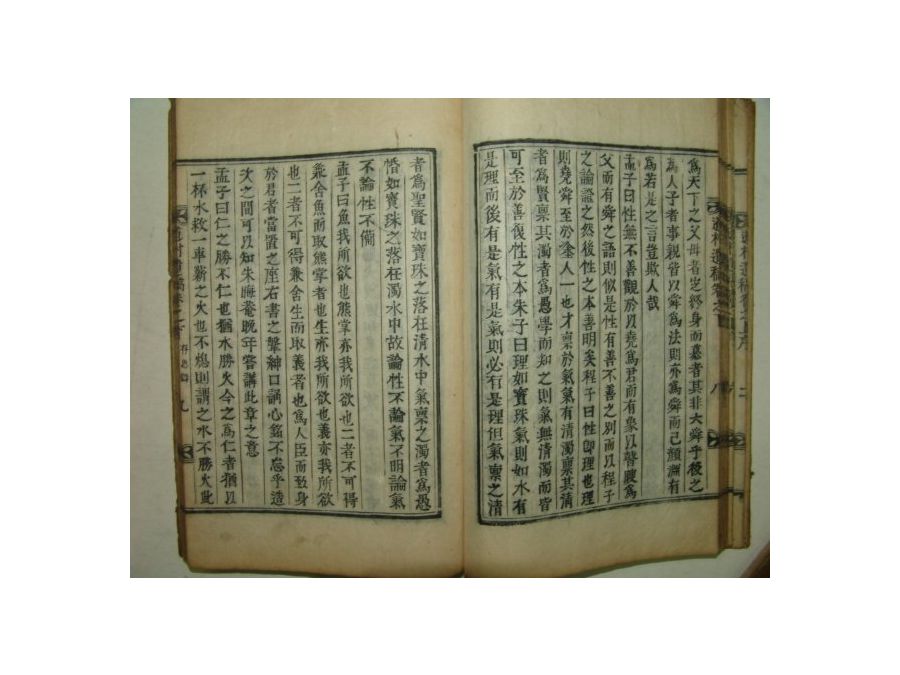 爲天下之父母者定終身而慕者其非大舜乎後之
爲人子者事親皆以舜爲法則亦爲舜而已顔淵有
爲若是之言豈欺人哉
孟子曰性無不善觀於以堯爲君而有象以瞽瞍爲
父而有舜之語則似是性有善不善之別而以程子
之論證之然後性之本善明矣程子曰性即理也理
則堯舜至於塗人一也才稟於氣氣有清濁稟其清
者爲賢稟其濁者爲愚學而知之則氣無清濁而皆
可至於善復性之本朱子曰理如寶珠氣則如水有
是理而後有是氣有是氣則必有是理但氣稟之清
者爲聖賢如寶珠之落在清水中氣稟之濁者爲愚
惛如寶珠之落在濁水中故論性不論氣不明論氣
不論性不備
孟子曰魚我所欲也熊掌亦我所欲也二者不可得
兼舍魚而取熊掌者也生亦我所欲也義亦我所欲
也二者不可得兼舍生而取義者也爲人臣而致身
於君者當置之座右書之鞶紳口誦心銘不忘乎造
次之間可以知朱晦菴晩年嘗講此章之意
孟子曰仁之勝不仁也猶水勝火今之爲仁者猶以
一杯水救一車薪之火也不熄則謂之水不勝火此
九